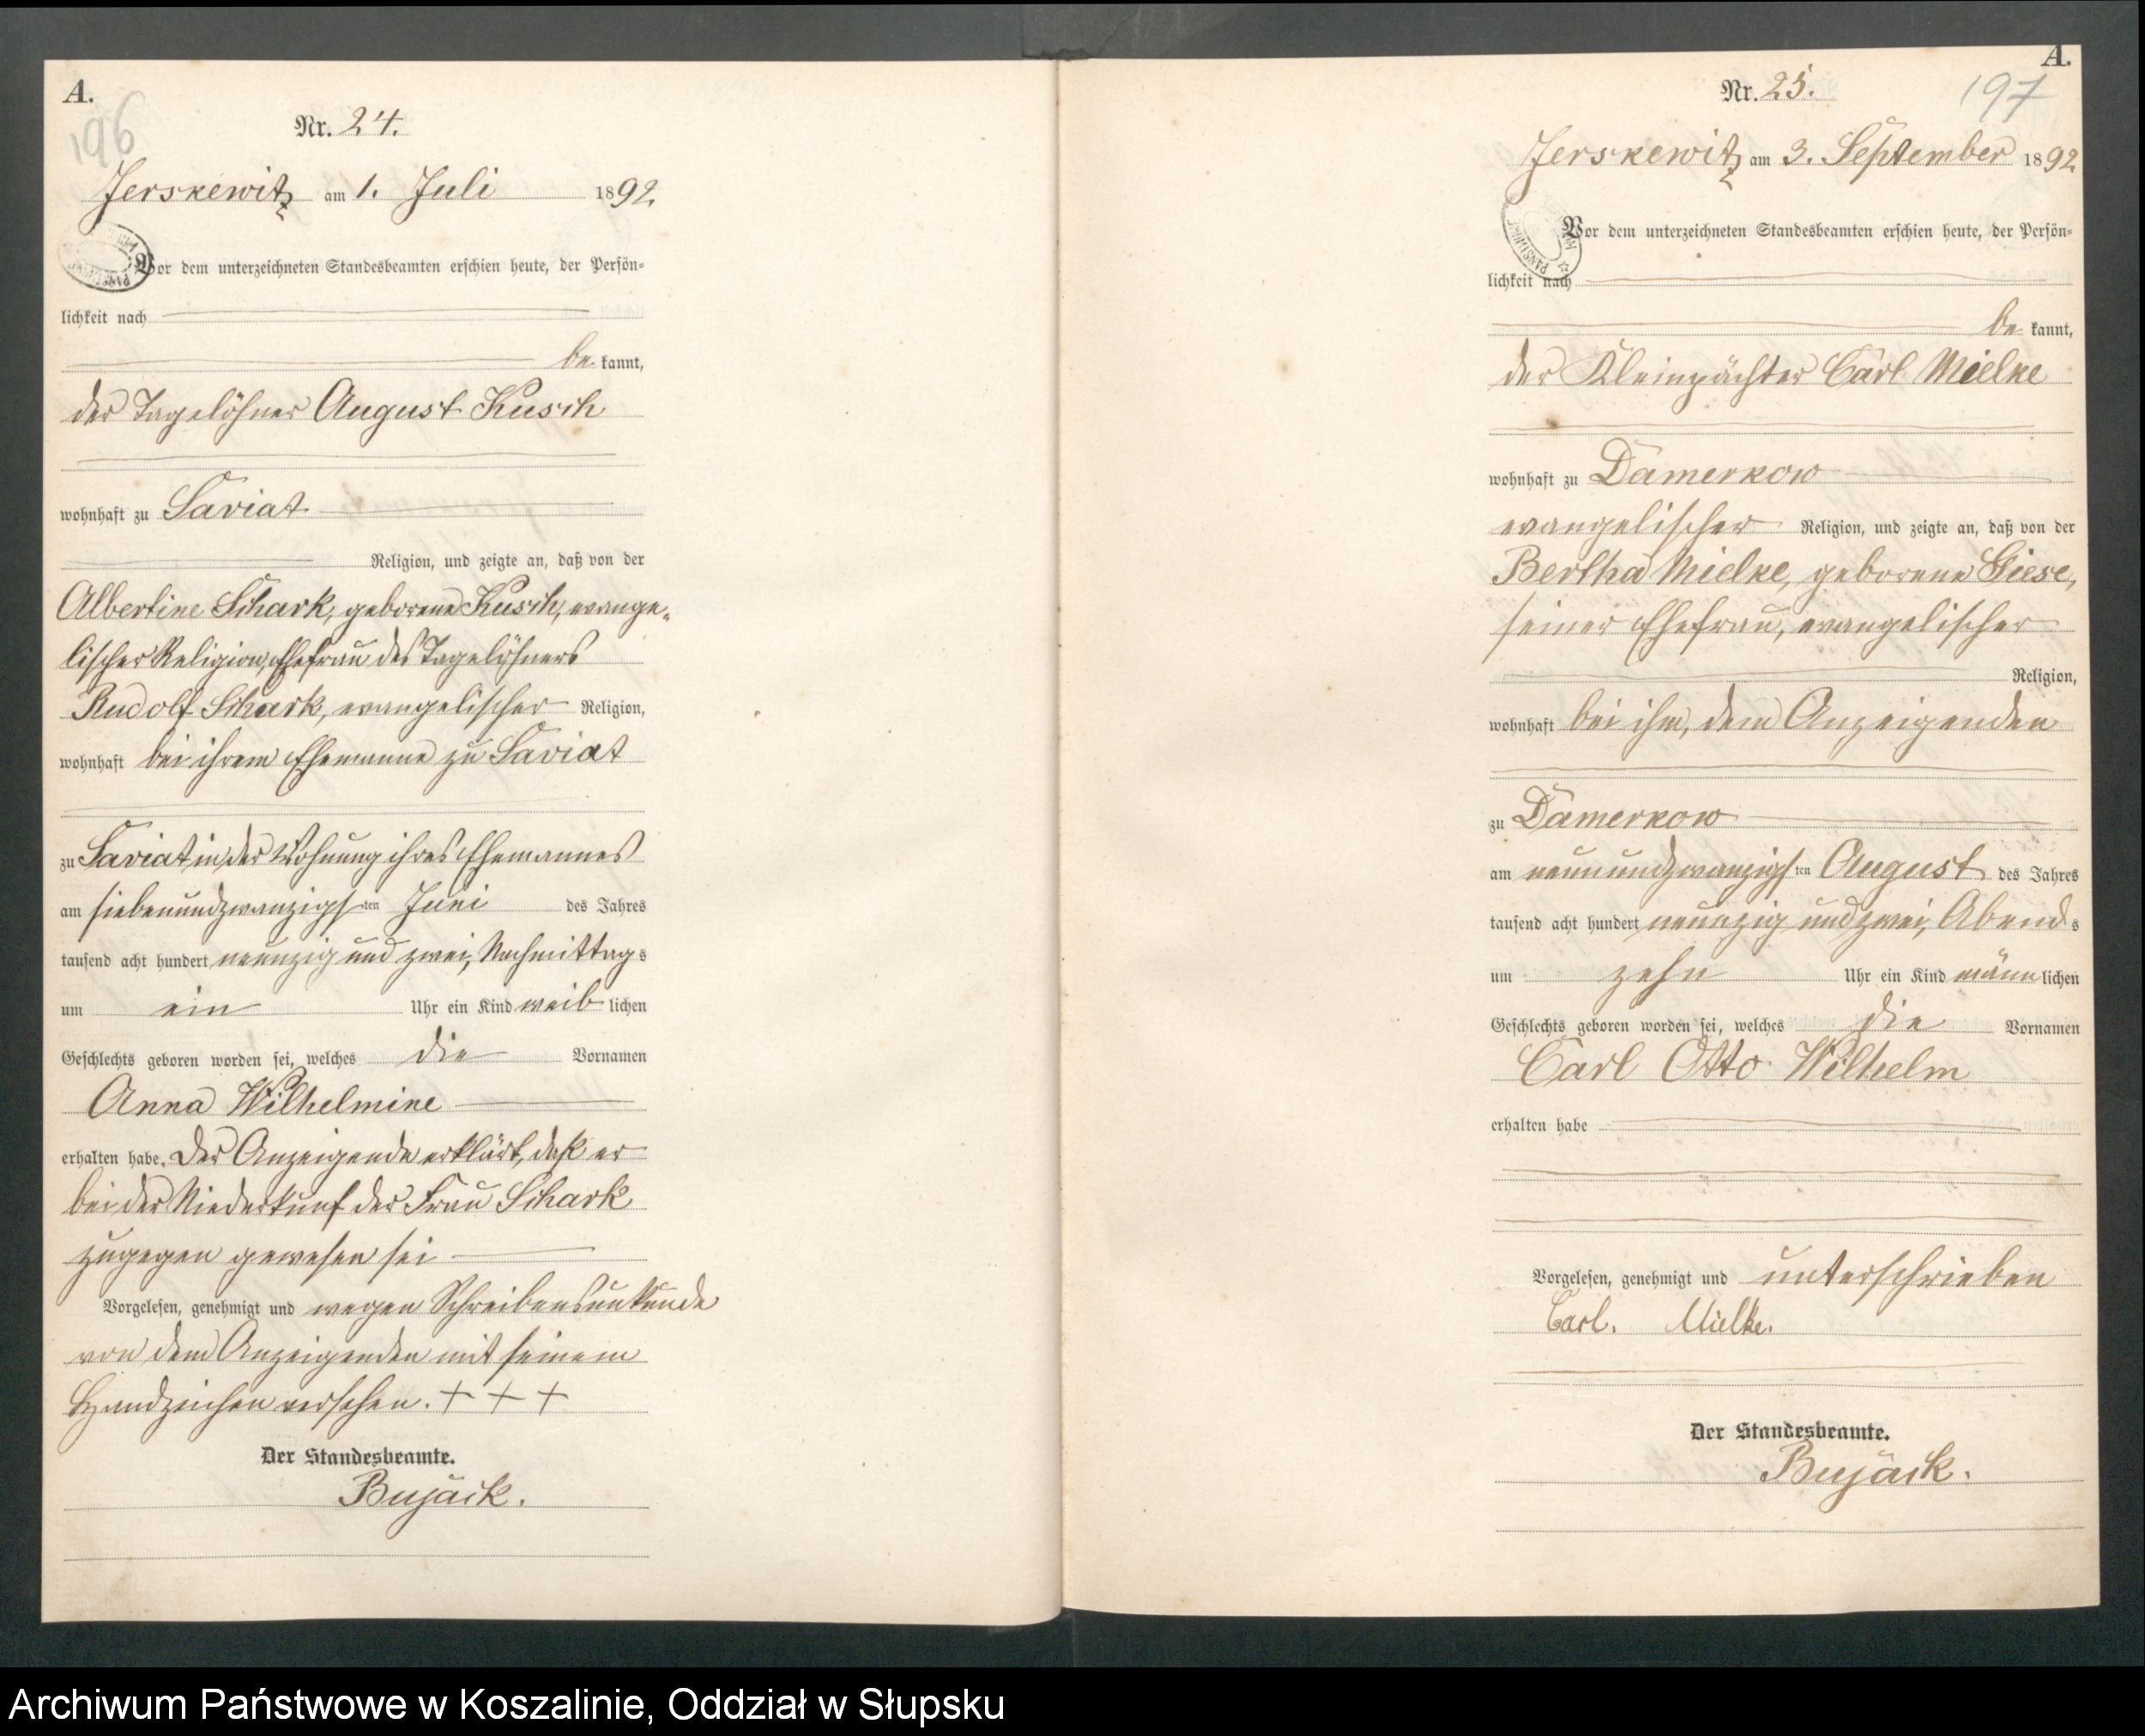 A.
196
Nr. 24.
Jerskewitz am 1. Juli 1892.
Vor dem unterzeichneten Standesbeamten erschien heute, der Persön-
lichkeit nach
be kannt,
der Tagelöhner August Kusch
wohnhaft zu Saviat
Religion, und zeigte an, daß von der
Albertine Schark, geborene Kusch, evange-
lischer Religion, Ehefrau des Tagelöhners
Rudolf Schark, evangelischer Religion,
wohnhaft bei ihrem Ehemanne zu Saviat
zu Saviat in der Wohnung ihres Ehemannes
am siebenundzwanzigsten Juni des Jahres
tausend acht hundert neunzig und zwei, Nachmittags
um ein Uhr ein Kind weiblichen
Geschlechts geboren worden sei, welches die Vornamen
Anna Wilhelmine
erhalten habe. Der Anzeigende erklärt, daß er
bei der Niederkunf der Frau Schark
zugegen gewesen sei
Vorgelesen, genehmigt und wegen Schreibensunkunde
von dem Anzeigenden mit seinem
Handzeichen versehen. + + +
Der Standesbeamte.
Bujack.
A.
197
Nr. 25.
Jerskewitz am 3. September 1892
Vor dem unterzeichneten Standesbeamten erschien heute, der Persön-
lichkeit nach
be kannt,
der Kleinpächter Carl Mielke
wohnhaft zu Damerkow
evangelischer Religion, und zeigte an, daß von der
Bertha Mielke, geborene Giese,
seiner Ehefrau, evangelischer
Religion,
wohnhaft bei ihm, dem Anzeigenden
zu Damerkow
am neunundzwanzigsten August des Jahres
tausend acht hundert neunzig und zwei, Abends
um zehn Uhr ein Kind männlichen
Geschlechts geboren worden sei, welches die Vornamen
Carl Otto Wilhelm
erhalten habe
Vorgelesen, genehmigt und unterschrieben
Carl. Mielke.
Der Standesbeamte.
Bujack.
Archiwum Państwowe w Koszalinie, Oddział w Słupsku